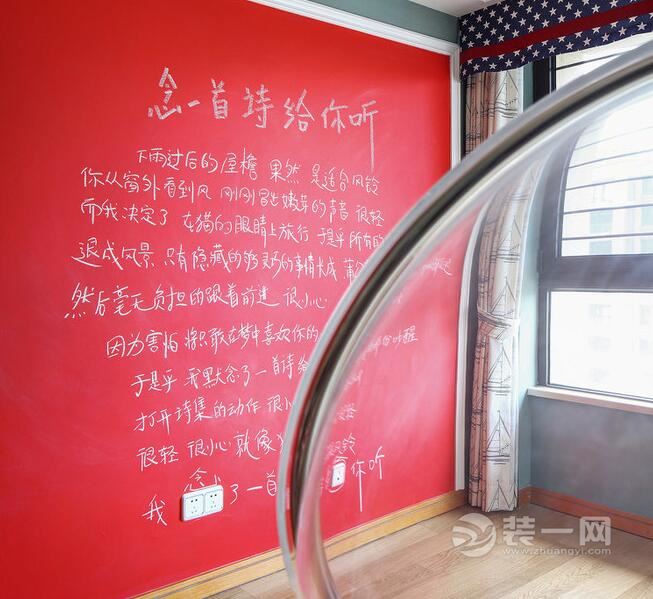 念一首诗给你听
下雨过后的屋檐 果然 是适合风铃
你从窗外看到风 刚刚冒出嫩芽的声音 很轻
而我决定了 在猫的眼睛上旅行 于是乎所有的
退成风景 只有隐藏的够好的事情长成 蒲公
然后毫无负担的跟着前进 很小心
因为害怕 将只敢在梦中喜欢你的 醒
于是乎 我默念了一首诗给
打开诗集的动作 很小
很轻 很小心 就像 风铃
我念 了一首 你听
装一网
www.zhuangyi.com